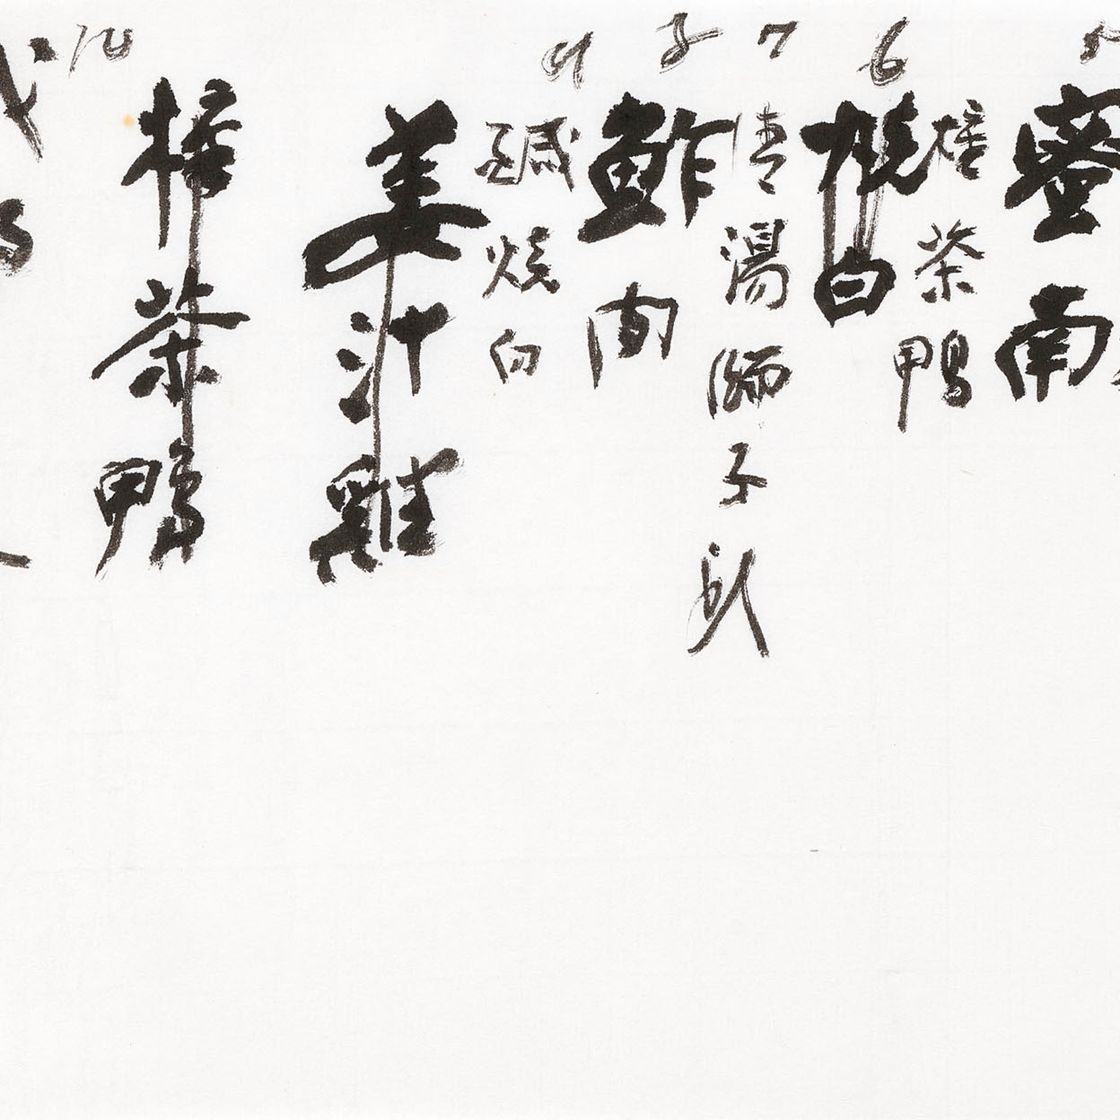 蜜南
樟茶鴨
6
白
7
清湯獅子頭
8
鮓肉
9
鹹燒白
姜汁雞
10
樟茶鴨